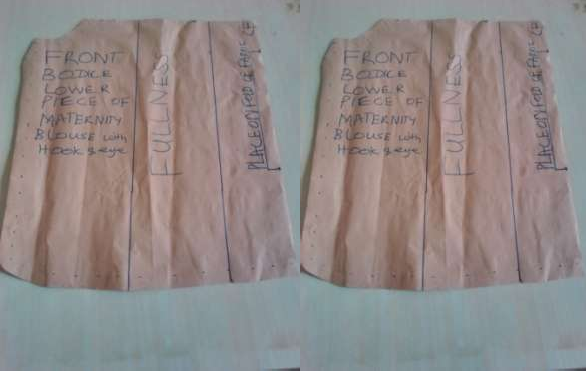 FRONT
BODICE
LOWER
PIECE OF
MATERNITY
BLOUSE with
Hook & eye
FULLNESS
PLACE ON FOLD OF FABRIC CF
FRONT
BODICE
LOWER
PIECE OF
MATERNITY
BLOUSE with
Hook & eye
FULLNESS
PLACE ON FOLD OF FABRIC CF